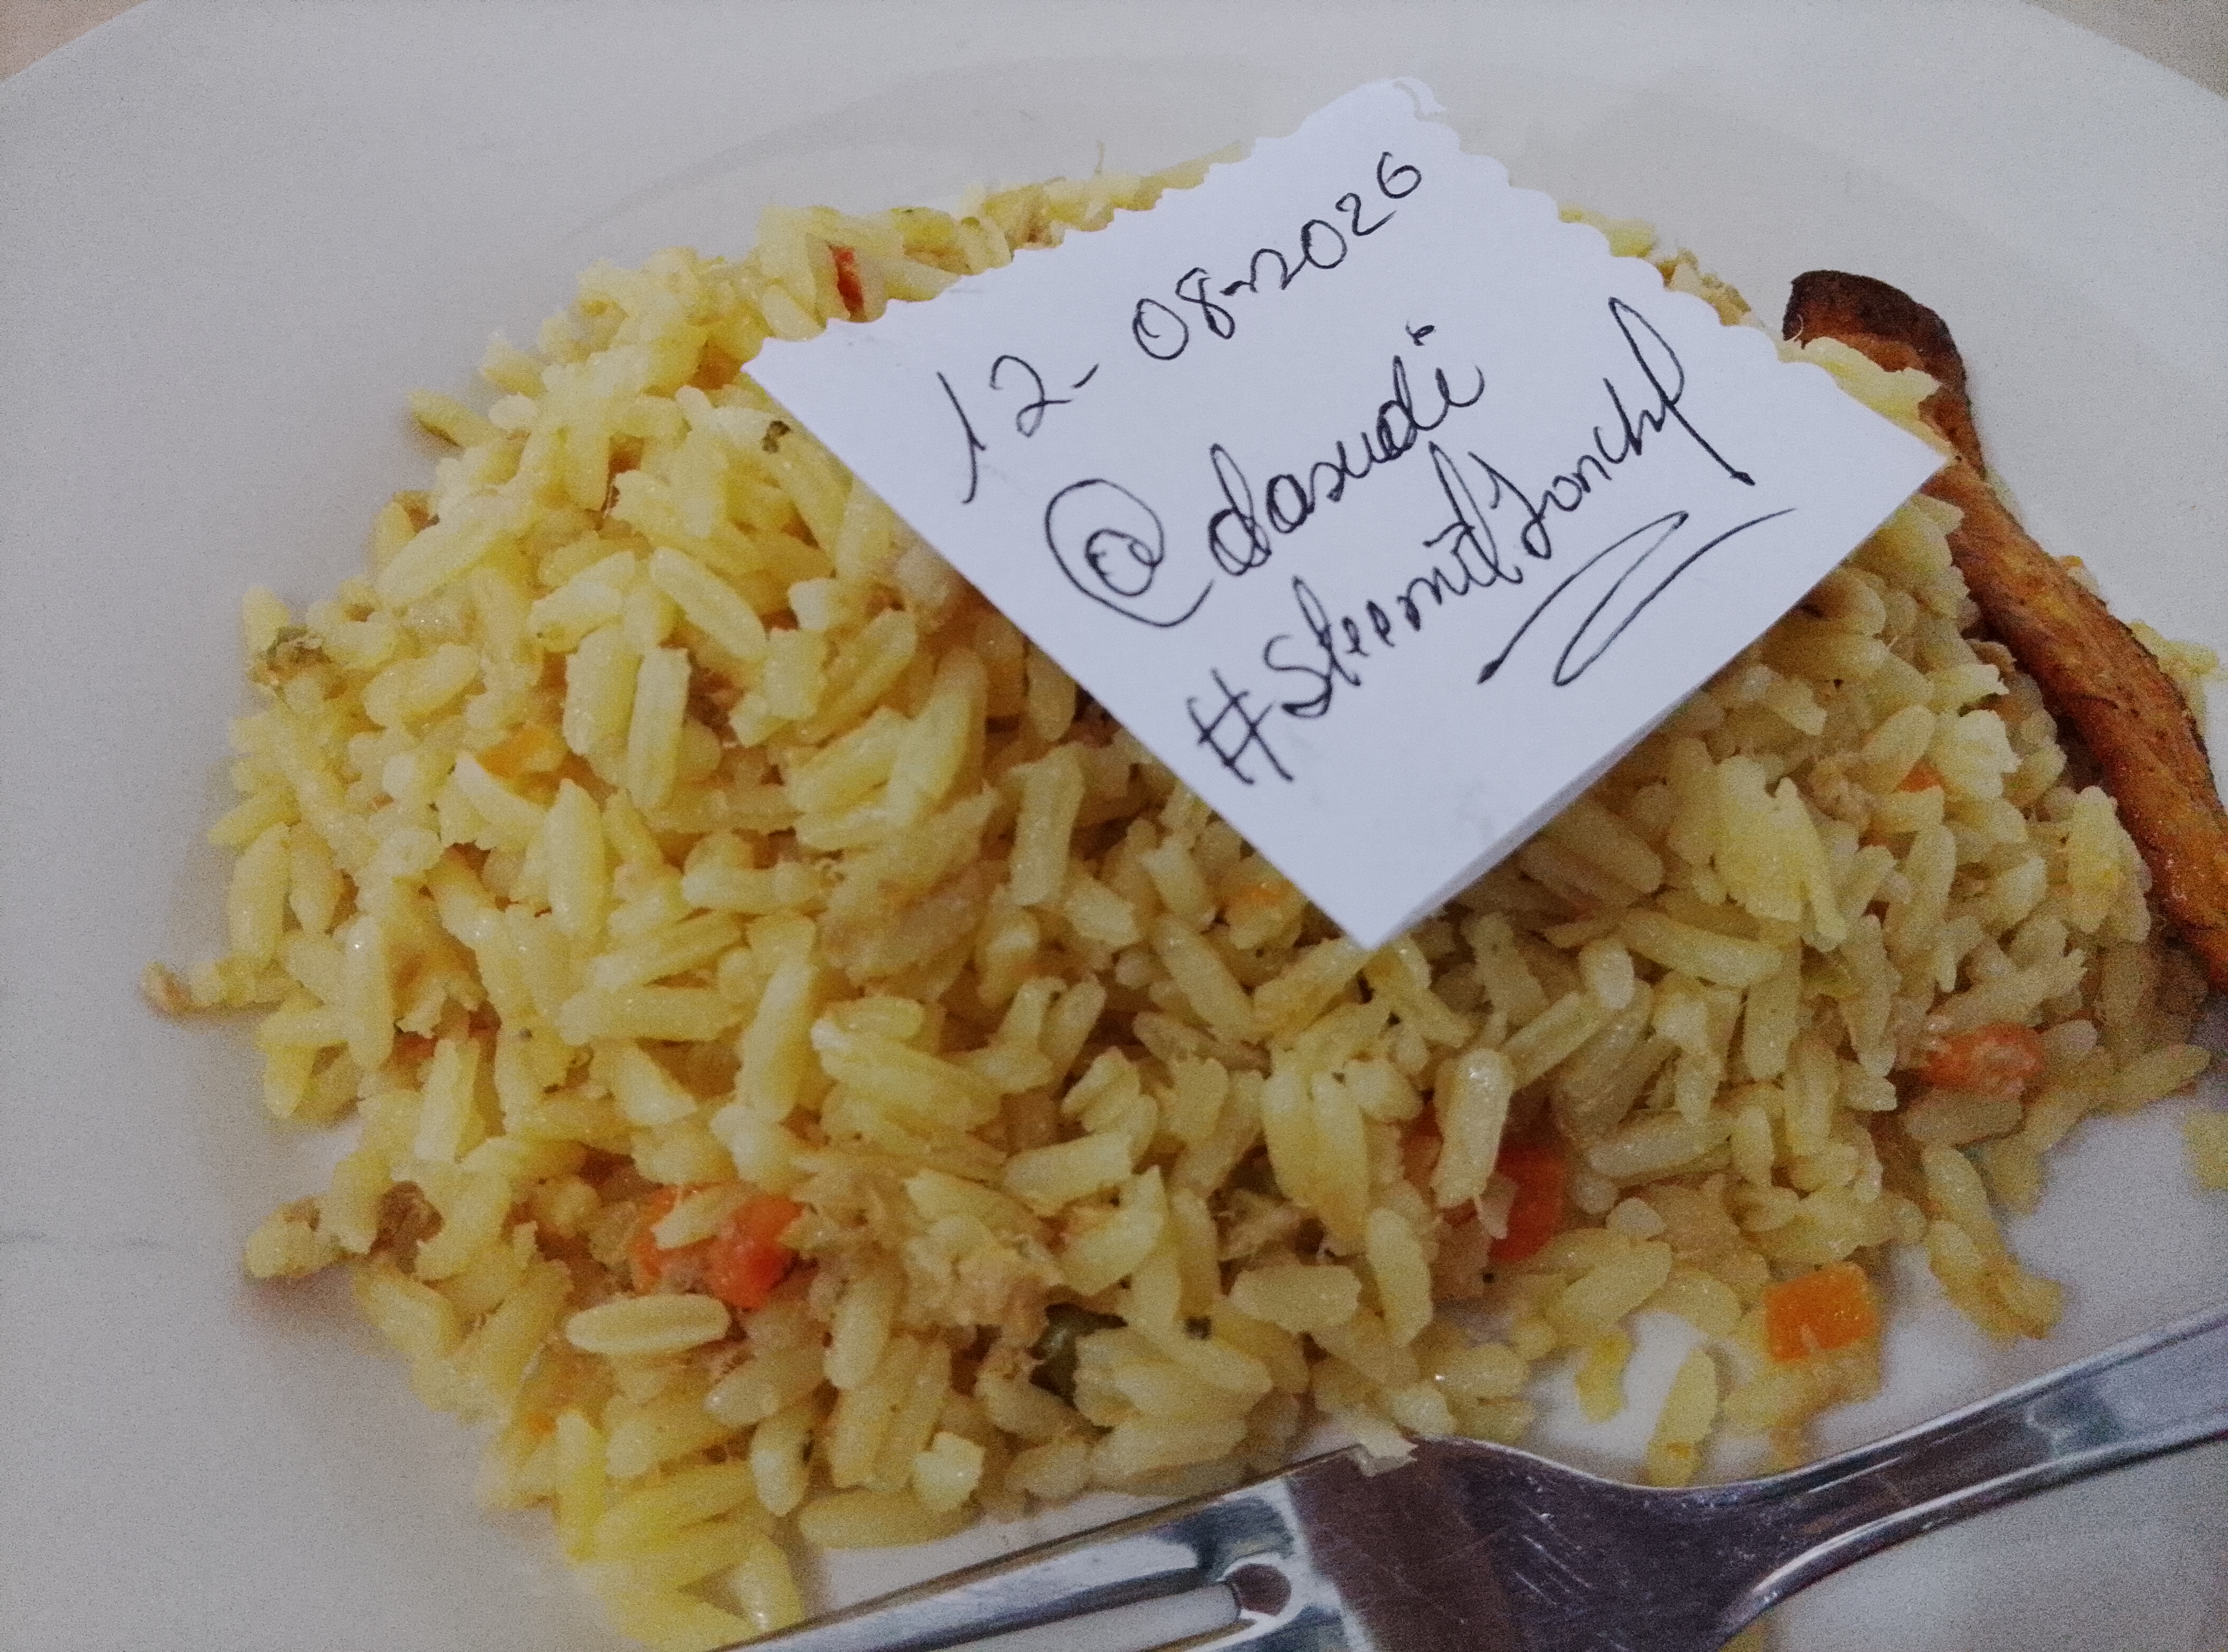 12-08-2026
@dasudi
#SteemitIronchef